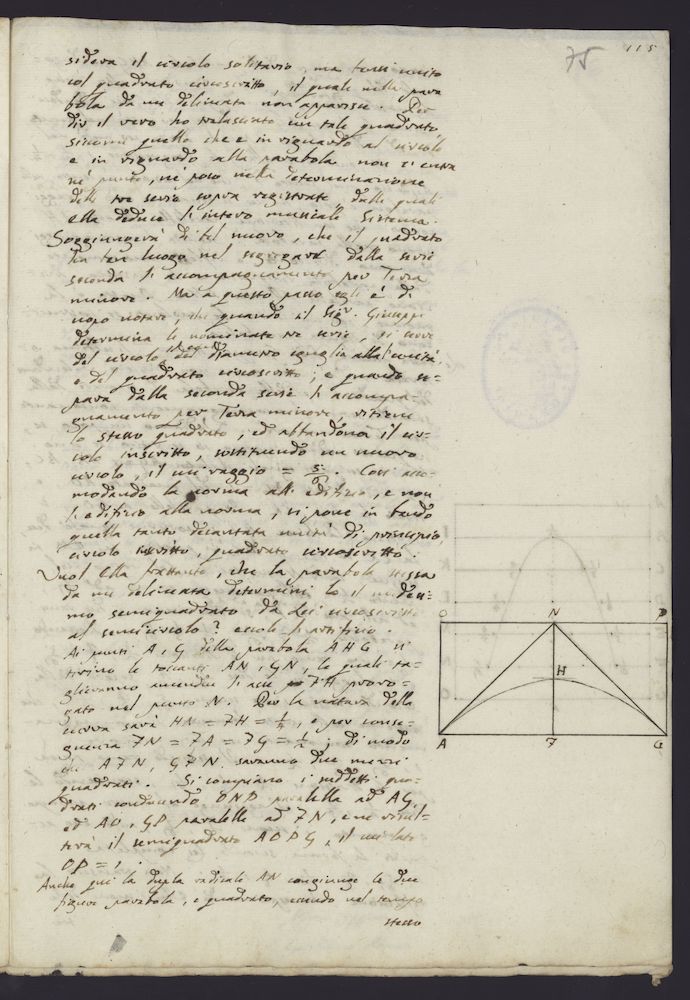 115
75
sidera il circolo solitario, ma bensì unito
col quadrato circoscritto, il quale nella para
bola da me delineata non apparisce. Per
dir il vero ho tralasciato un tal quadrato,
siccome quello che e in riguardo al circolo
e in riguardo alla parabola non c'entra
nè punto, nè poco nella determinazione
delle tre serie sopra registrate, dalle quali
ella deduce l'intero musicale Sistema.
Soggiungerà di bel nuovo, che il quadrato
ha ben luogo nel segregare dalla serie
seconda l'accompagnamento per Terza
minore. Ma a questo passo egli è di
uopo notare, che quando il Sigr. Giuseppe
determina le nominate tre serie, si serve
del circolo, del diametro uguglia all'unità,
e del quadrato circoscritto; e quando se-
para dalla seconda serie l'accompa-
gnamento per Terza minore, ritiene
lo stesso quadrato, ed abbandona il cir-
colo inscritto, sostituendo un nuovo
circolo, il cui raggio = . Così acco-
modando la norma all'edifizio, e non
l'edifizio alla norma, si pone in bando
quella tanto decantata unità di principio,
circolo iscritto, quadrato circoscritto.
Vuol ella frattanto, che la parabola stessa
da me delineata determini lo il medesi-
mo semiquadrato da lei circoscritto
al semicircolo? eccole l'artifizio.
Ai punti A, G della parabola AHG si
tirino le toccanti AN, GN, le quali ta-
glieranno amendue l'asse FH provo-
gato nel punto N. Per la natura della
curva sarà HN = FH = 1/4, e per conse-
guenza FN = FA = FG = 1/2; di modo
che AFN, GFN saranno due mezzi
quadrati. Si compiano i suddetti qua-
drati conducendo ONP paralella ad AG,
ed AO, GP paralelle ad FN, e ne risul-
terà il semiquadrato AOPG, il cui lato
OP = 1.
Anche qui la dupla radicale AN congiunge le due
figure parabola, e quadrato, essendo nel tempo
stesso
O N P
H
A F G